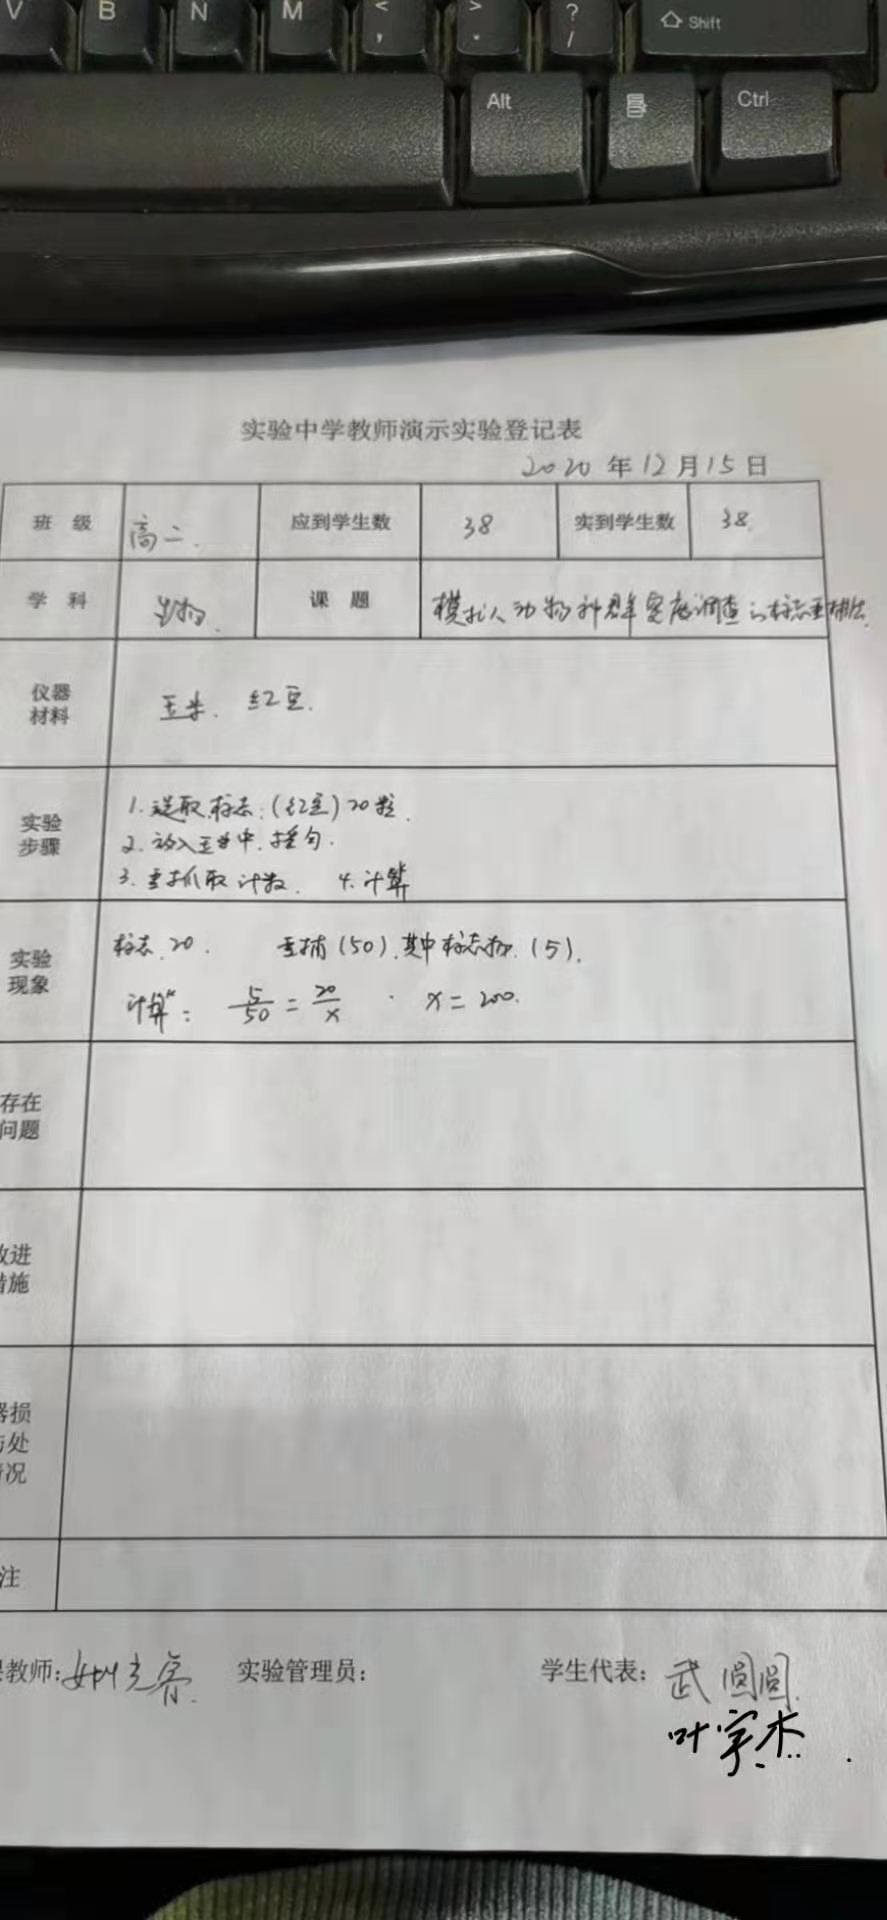 V B N M < , > . ? / Shift
Alt Ctrl
实验中学教师演示实验登记表
2020 年 12 月 15 日
班 级 高二. 应到学生数 38 实到学生数 38.
学 科 生物. 课 题 模拟动物种群密度调查的标志重捕法.
仪器
材料
玉米. 红豆.
实验
步骤
1. 选取.标志:(红豆)20粒.
2. 放入玉米中.摇匀.
3. 重抓取计数. 4. 计算
实验
现象
标志.20. 重捕(50).其中标志物.(5).
计算: 5/50 = 20/x . x = 200.
存在
问题
改进
措施
器损
处
情况
注
课教师: 实验管理员: 学生代表: 武圆圆.
叶宇杰..